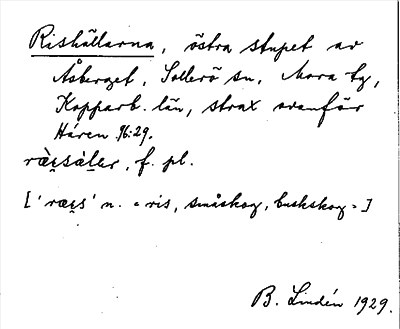 Rishällarna, östra stupet av
Åsberget, Sollerö sn, Mora tg,
Kopparb. län, strax ovanför
Håren 96:29.
ræ̀i̯sàḷer, f. pl.
[ 'ræi̯s' n. = ris, småskog, buskskog = ]
B. Lindén 1929.